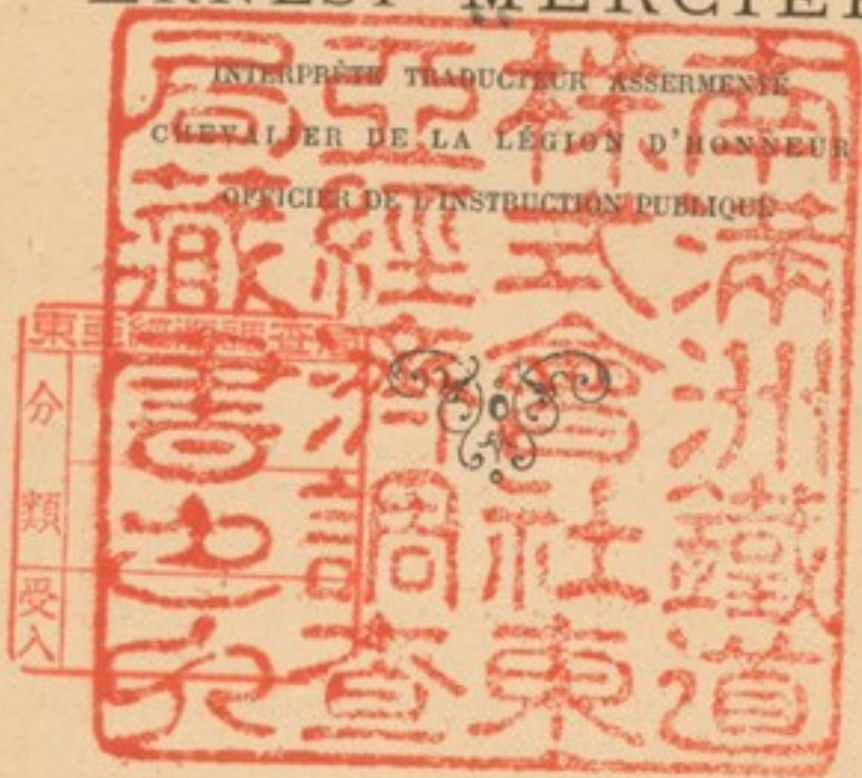 ERNEST MERCIER
INTERPRÈTE TRADUCTEUR ASSERMENTÉ
CHEVALIER DE LA LÉGION D'HONNEUR
OFFICIER DE L'INSTRUCTION PUBLIQUE
南滿洲鐵道
株式會社東
亞經濟調查
局藏書之印
東亞經濟調查局
分類
受入